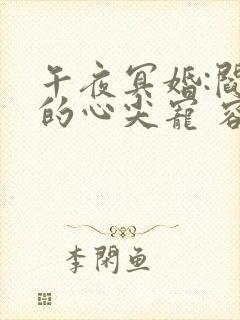 午夜冥婚:閻
的心尖寵 容
李閑魚